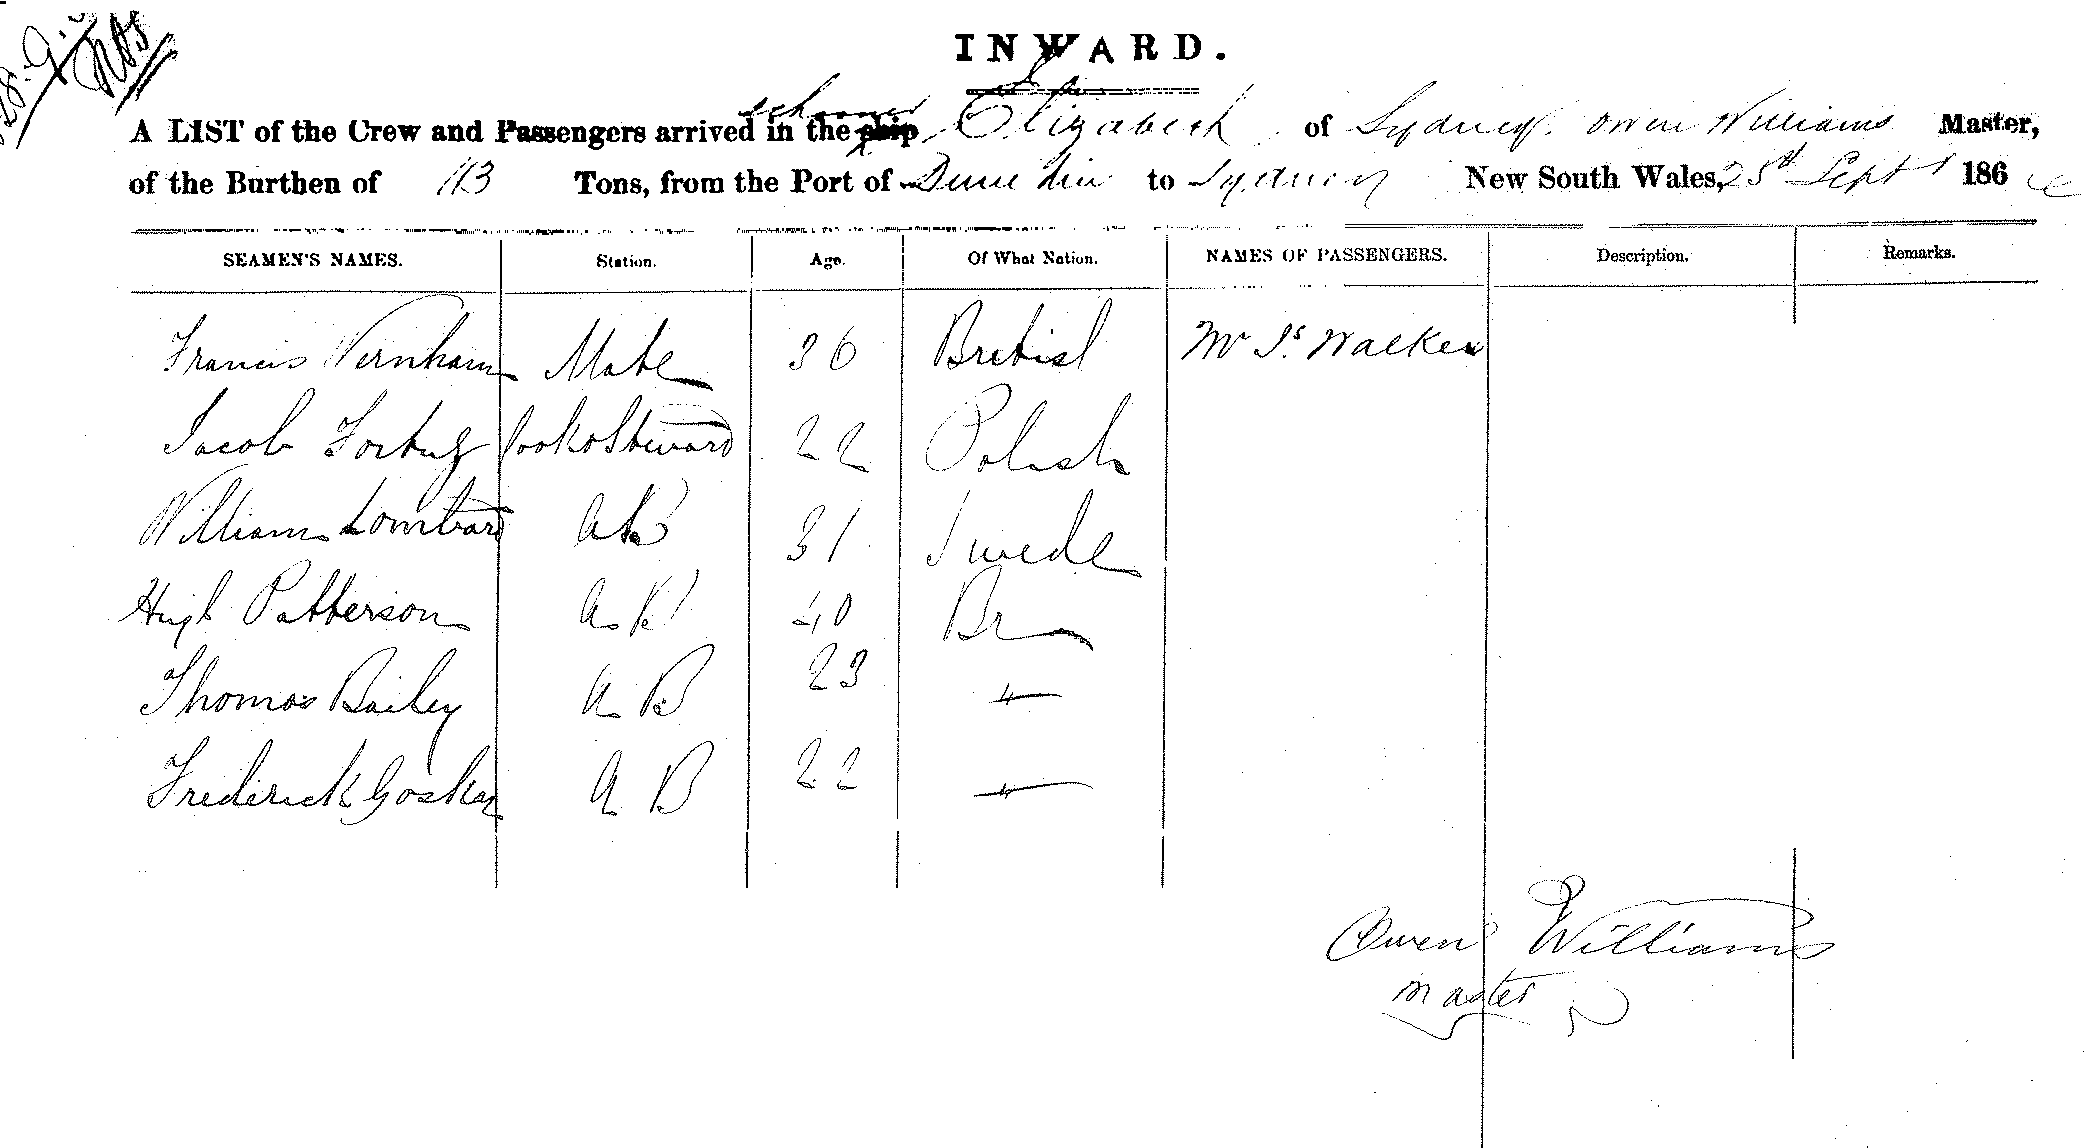 INWARD.
A LIST of the Crew and Passengers arrived in the ship schooner Elizabeth of Sydney. Owen Williams Master,
of the Burthen of 113 Tons, from the Port of Dunedin to Sydney New South Wales, 25th Sept 186
SEAMEN'S NAMES. Station. Age. Of What Nation. NAMES OF PASSENGERS. Description. Remarks.
Francis Vernham Mate 36 British Mr Js Walker
Jacob Cook & Steward 22 Polish
William Lombard AB 31 Swede
Hugh Patterson AB 40 Br
Thomas Bailey AB 23 "
Frederick Goskar AB 22 "
Owen Williams
Master